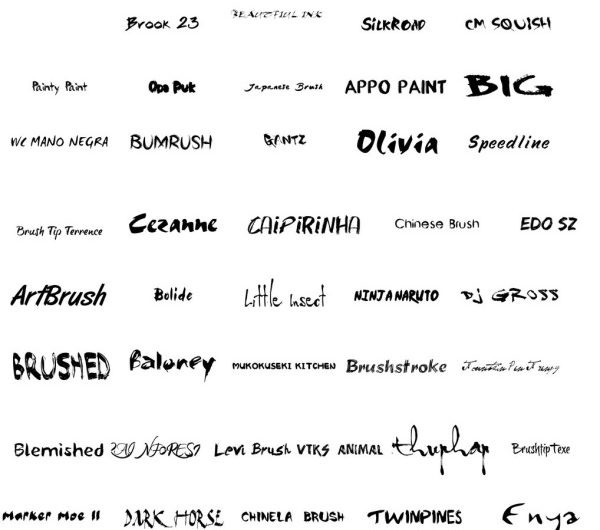 Brook 23 BEAUTIFUL INK SILKROAD CM SQUISH
Painty Paint Opa Puk Japanese Brush APPO PAINT BIG
WC MANO NEGRA BUMRUSH GANTZ Olivia Speedline
Brush Tip Terrence Cezanne CAiPiRiNHA Chinese Brush EDO SZ
ArtBrush Bolide Little Insect NINJA NARUTO DJ GROSS
BRUSHED Baloney MUKOKUSEKI KITCHEN Brushstroke
Blemished Levi Brush VTKS ANIMAL thuphap BrushtipTexe
Marker Moe II DARK HORSE CHINELA BRUSH TWINPINES Enya